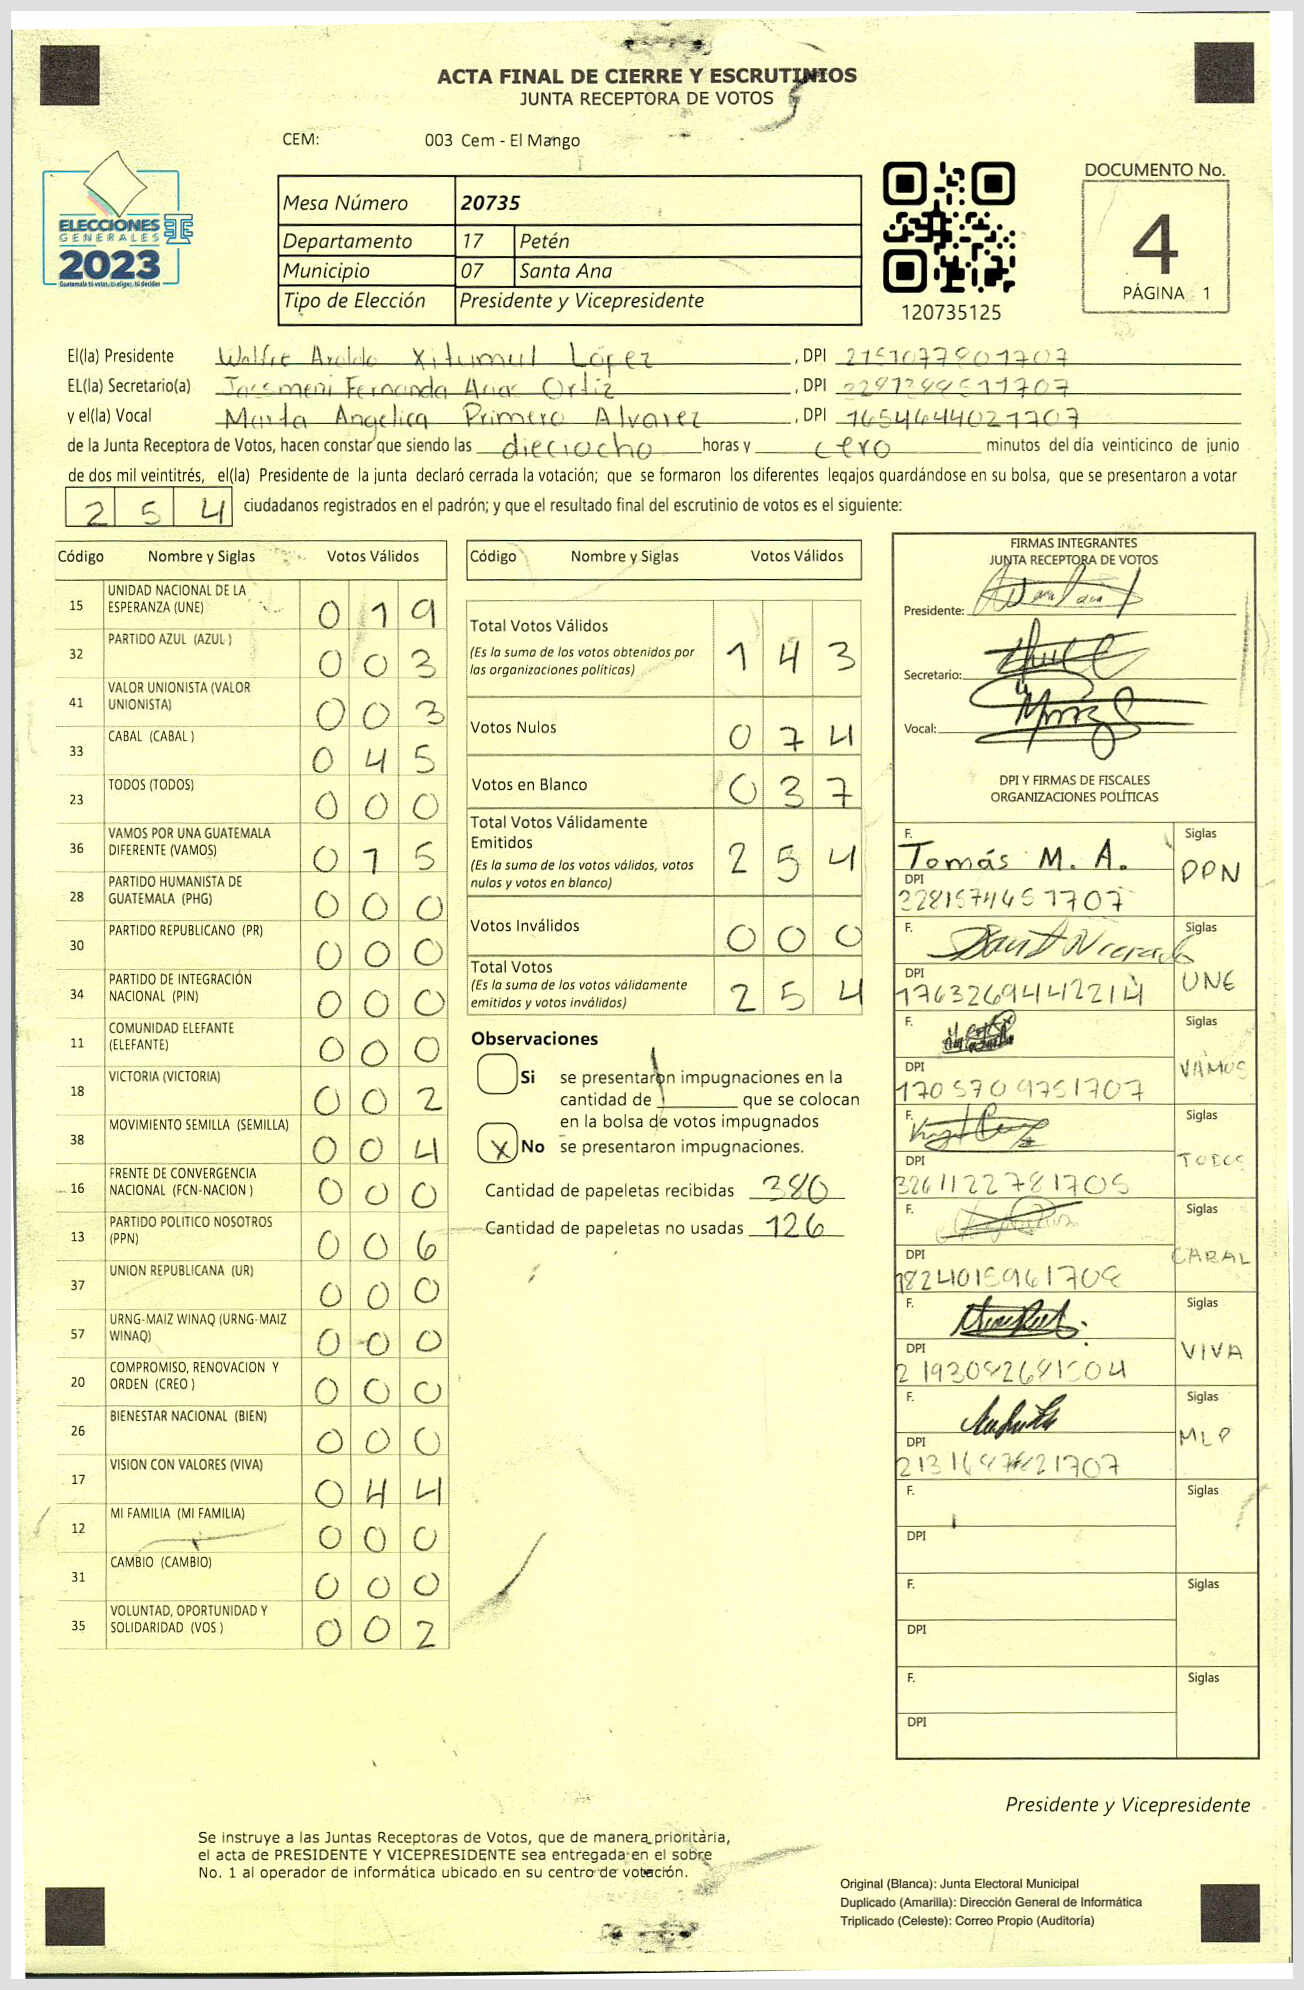 ACTA FINAL DE CIERRE Y ESCRUTINIOS
JUNTA RECEPTORA DE VOTOS
CEM: 003 Cem - El Mango
ELECCIONES
GENERALES
2023
Guatemala tú votas, tú eliges, tú decides
Mesa Número 20735
Departamento 17 Petén
Municipio 07 Santa Ana
Tipo de Elección Presidente y Vicepresidente
120735125
DOCUMENTO No.
4
PÁGINA 1
El(la) Presidente Xitumul López , DPI 2151077801707
EL(la) Secretario(a) Fernanda Arias Ortiz , DPI
y el(la) Vocal Marta Angelica Primero Alvarez , DPI 1654644021707
de la Junta Receptora de Votos, hacen constar que siendo las dieciocho horas y cero minutos del día veinticinco de junio
de dos mil veintitrés, el(la) Presidente de la junta declaró cerrada la votación; que se formaron los diferentes legajos guardándose en su bolsa, que se presentaron a votar
254 ciudadanos registrados en el padrón; y que el resultado final del escrutinio de votos es el siguiente:
Código Nombre y Siglas Votos Válidos
15 UNIDAD NACIONAL DE LA ESPERANZA (UNE) 019
32 PARTIDO AZUL (AZUL ) 003
41 VALOR UNIONISTA (VALOR UNIONISTA) 003
33 CABAL (CABAL ) 045
23 TODOS (TODOS) 000
36 VAMOS POR UNA GUATEMALA DIFERENTE (VAMOS) 015
28 PARTIDO HUMANISTA DE GUATEMALA (PHG) 000
30 PARTIDO REPUBLICANO (PR) 000
34 PARTIDO DE INTEGRACIÓN NACIONAL (PIN) 000
11 COMUNIDAD ELEFANTE (ELEFANTE) 000
18 VICTORIA (VICTORIA) 002
38 MOVIMIENTO SEMILLA (SEMILLA) 004
16 FRENTE DE CONVERGENCIA NACIONAL (FCN-NACION ) 000
13 PARTIDO POLITICO NOSOTROS (PPN) 006
37 UNION REPUBLICANA (UR) 000
57 URNG-MAIZ WINAQ (URNG-MAIZ WINAQ) 000
20 COMPROMISO, RENOVACION Y ORDEN (CREO ) 000
26 BIENESTAR NACIONAL (BIEN) 000
17 VISION CON VALORES (VIVA) 044
12 MI FAMILIA (MI FAMILIA) 000
31 CAMBIO (CAMBIO) 000
35 VOLUNTAD, OPORTUNIDAD Y SOLIDARIDAD (VOS ) 002
Código Nombre y Siglas Votos Válidos
Total Votos Válidos 143
(Es la suma de los votos obtenidos por
las organizaciones políticas)
Votos Nulos 074
Votos en Blanco 037
Total Votos Válidamente
Emitidos 254
(Es la suma de los votos válidos, votos
nulos y votos en blanco)
Votos Inválidos 000
Total Votos
(Es la suma de los votos válidamente
emitidos y votos inválidos) 254
Observaciones
Si se presentaron impugnaciones en la
cantidad de ________ que se colocan
en la bolsa de votos impugnados
X No se presentaron impugnaciones.
Cantidad de papeletas recibidas 380
Cantidad de papeletas no usadas 126
FIRMAS INTEGRANTES
JUNTA RECEPTORA DE VOTOS
Presidente:
Secretario:
Vocal:
DPI Y FIRMAS DE FISCALES
ORGANIZACIONES POLÍTICAS
F. Tomás M. A. Siglas PPN
DPI
F. Siglas UNE
DPI 1763269442214
F. Siglas VAMOS
DPI 1705709751707
F. Siglas TODOS
DPI 3261122781705
F. Siglas CABAL
DPI
F. Siglas VIVA
DPI
F. Siglas MLP
DPI
F. Siglas
DPI
F. Siglas
DPI
F. Siglas
DPI
Presidente y Vicepresidente
Se instruye a las Juntas Receptoras de Votos, que de manera prioritaria,
el acta de PRESIDENTE Y VICEPRESIDENTE sea entregada en el sobre
No. 1 al operador de informática ubicado en su centro de votación.
Original (Blanca): Junta Electoral Municipal
Duplicado (Amarilla): Dirección General de Informática
Triplicado (Celeste): Correo Propio (Auditoría)